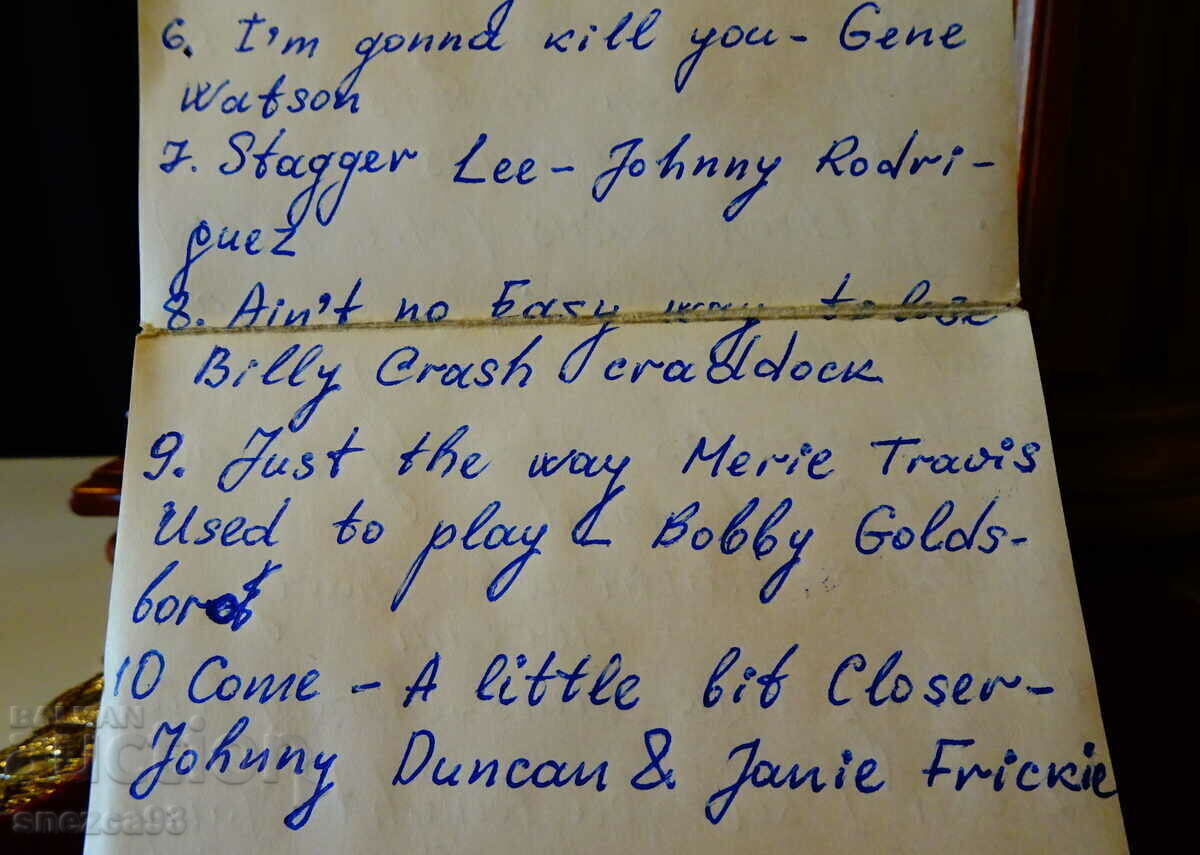 6. I'm gonna kill you - Gene
Watson
7. Stagger Lee - Johnny Rodri-
guez
8. Ain't no Easy way to
Billy Crash craddock
9. Just the way Merie Travis
Used to play - Bobby Golds-
boro
10 Come - A little bit Closer -
Johnny Duncan & Janie Frickie
BALKAN
auction
snezca93